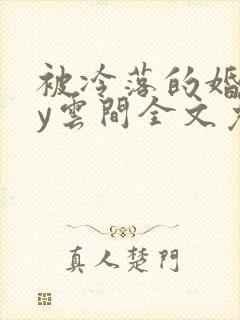 被冷落的婚
y雲間全文免
真人楚門